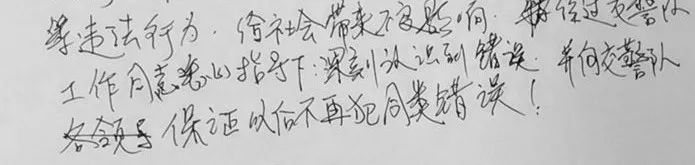 等违法行为.给社会带来不良影响.特经过交警队
工作同志悉心指导下:深刻认识到错误.并向交警队
各领导保证以后不再犯同类错误!